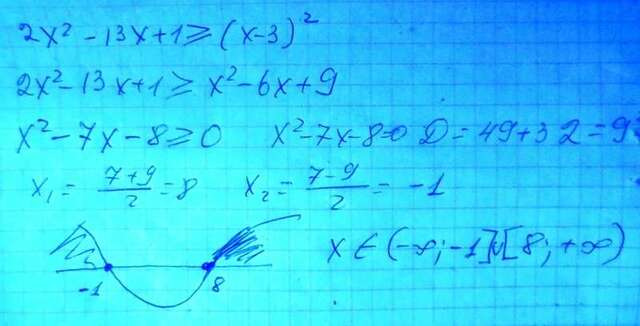 2x² - 13x + 1 ≥ (x-3)²
2x² - 13x + 1 ≥ x² - 6x + 9
x² - 7x - 8 ≥ 0 x² - 7x - 8 = 0 D = 49 + 32 = 9²
x₁ = (7+9)/2 = 8 x₂ = (7-9)/2 = -1
-1 8
x ∈ (-∞; -1] ∪ [8; +∞)